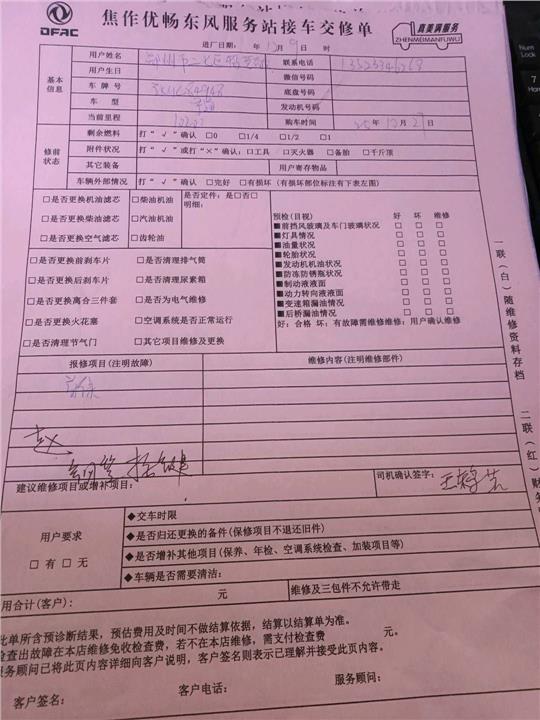 焦作优畅东风服务站接车交修单
DFAC
真美满服务
ZHENMEIMANFUWU
进厂日期: 年 月 9 日 时
基本信息
用户姓名
联系电话
用户生日
微信号码
车 牌 号
底盘号码
车 型
发动机号码
当前里程
购车时间 年 12 月 日
修前状态
剩余燃料 打“ √ ”确认 □0 □1/4 □1/2 □1
附件状况 打“ √ ”或打“×”确认:□工具 □灭火器 □备胎 □千斤顶
其它装备 用户寄存物品
车辆外部情况 打“ √ ”确认 □完好 □有损坏 (有损坏部位标注有下表左图)
□是否更换机油滤芯 □柴油机油 是否定件:是□否□
明细:
□是否更换柴油滤芯 □汽油机油
□是否更换空气滤芯 □齿轮油
□是否更换前刹车片 □是否清理排气筒
□是否更换后刹车片 □是否清理尿素箱
□是否更换离合三件套 □是否为电气维修
□是否更换火花塞 □空调系统是否正常运行
□是否清理节气门 □其它项目维修及更换
预检(目视) 好 坏 维修
■前挡风玻璃及车门玻璃状况 □ □ □
■灯具情况 □ □ □
■油量状况 □ □ □
■轮胎状况 □ □ □
■发动机机油状况 □ □ □
■防冻防锈瓶状况 □ □ □
■制动液液面 □ □ □
■动力转向液液面 □ □ □
■变速箱漏油情况 □ □ □
■后桥漏油情况 □ □ □
好:合格 坏:有故障需维修维修:用户确认维修
报修项目(注明故障) 维修内容(注明维修部件)
赵
建议维修项目或增补项目:
司机确认签字:
用户要求
□ 有 □ 无
◆交车时限
◆是否归还更换的备件(保修项目不退还旧件)
◆是否增补其他项目(保养、年检、空调系统检查、加装项目等)
◆车辆是否需要清洁:
用合计(客户): 元 维修及三包件不允许带走
此单所含预诊断结果,预估费用及时间不做结算依据,结算以结算单为准。
检查出故障在本店维修免收检查费,若不在本店维修,需支付检查费 元。
服务顾问已将此页内容详细向客户说明,客户签名则表示已理解并接受此页内容。
客户签名: 客户电话: 服务顾问:
一联(白)随维修资料存档
二联(红)
Num
Lock